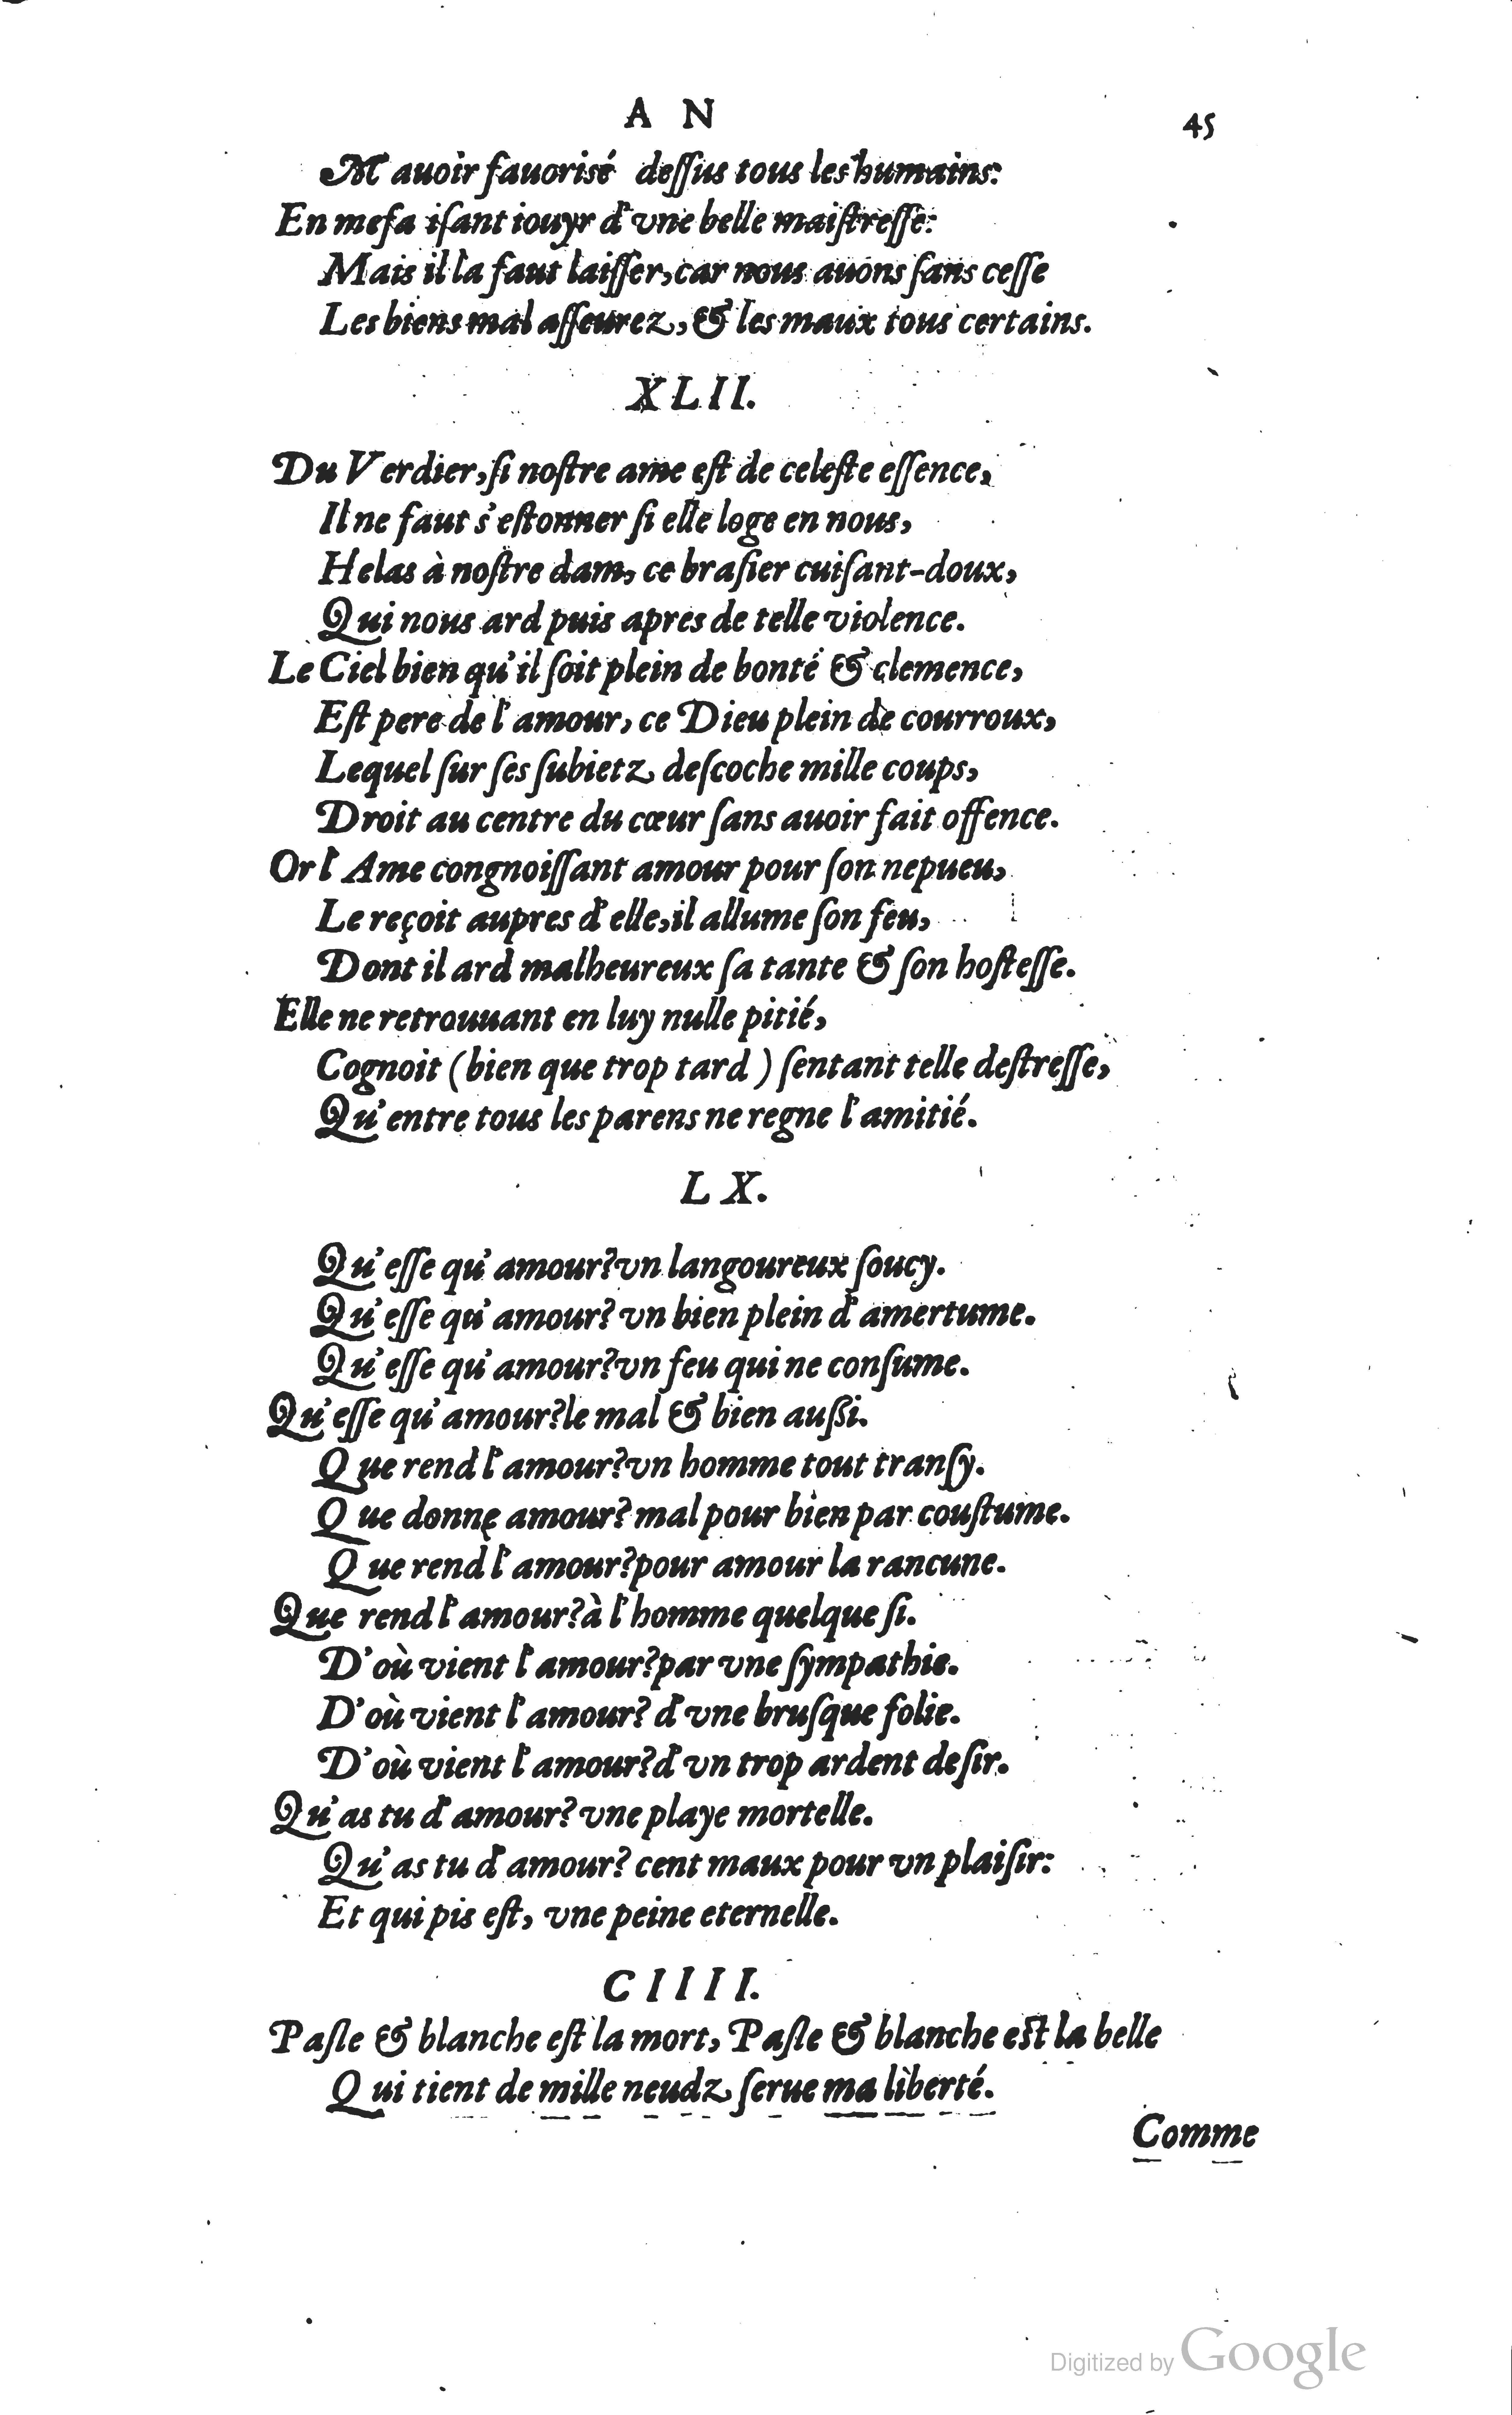 A N
45
M auoir fauorisé deſſus tous les humains:
En mefa iſant iouyr d'vne belle maiſtreſſe:
Mais il la faut laiſſer, car nous auons ſans ceſſe
Les biens mal aſſeurez, & les maux tous certains.
XLII.
Du Verdier, ſi noſtre ame eſt de celeſte eſſence,
Il ne faut s'eſtonner ſi elle loge en nous,
Helas à noſtre dam, ce braſier cuiſant-doux,
Qui nous ard puis apres de telle violence.
Le Ciel bien qu'il ſoit plein de bonté & clemence,
Eſt pere de l'amour, ce Dieu plein de courroux,
Lequel ſur ſes ſubietz deſcoche mille coups,
Droit au centre du cœur ſans auoir fait offence.
Or l'Ame congnoiſſant amour pour ſon nepueu,
Le reçoit aupres d'elle, il allume ſon feu,
Dont il ard malheureux ſa tante & ſon hoſteſſe.
Elle ne retrouuant en luy nulle pitié,
Cognoit (bien que trop tard) ſentant telle deſtreſſe,
Qu'entre tous les parens ne regne l'amitié.
LX.
Qu'eſſe qu'amour? vn langoureux ſoucy.
Qu'eſſe qu'amour? vn bien plein d'amertume.
Qu'eſſe qu'amour? vn feu qui ne conſume.
Qu'eſſe qu'amour? le mal & bien außi.
Que rend l'amour? vn homme tout tranſy.
Que donne amour? mal pour bien par couſtume.
Que rend l'amour? pour amour la rancune.
Que rend l'amour? à l'homme quelque ſi.
D'où vient l'amour? par vne ſympathie.
D'où vient l'amour? d'vne bruſque folie.
D'où vient l'amour? d'vn trop ardent deſir.
Qu'as tu d'amour? vne playe mortelle.
Qu'as tu d'amour? cent maux pour vn plaiſir:
Et qui pis eſt, vne peine eternelle.
CIIII.
Paſle & blanche eſt la mort, Paſle & blanche est la belle
Qui tient de mille neudz ſerue ma liberté.
Comme
Digitized by Google